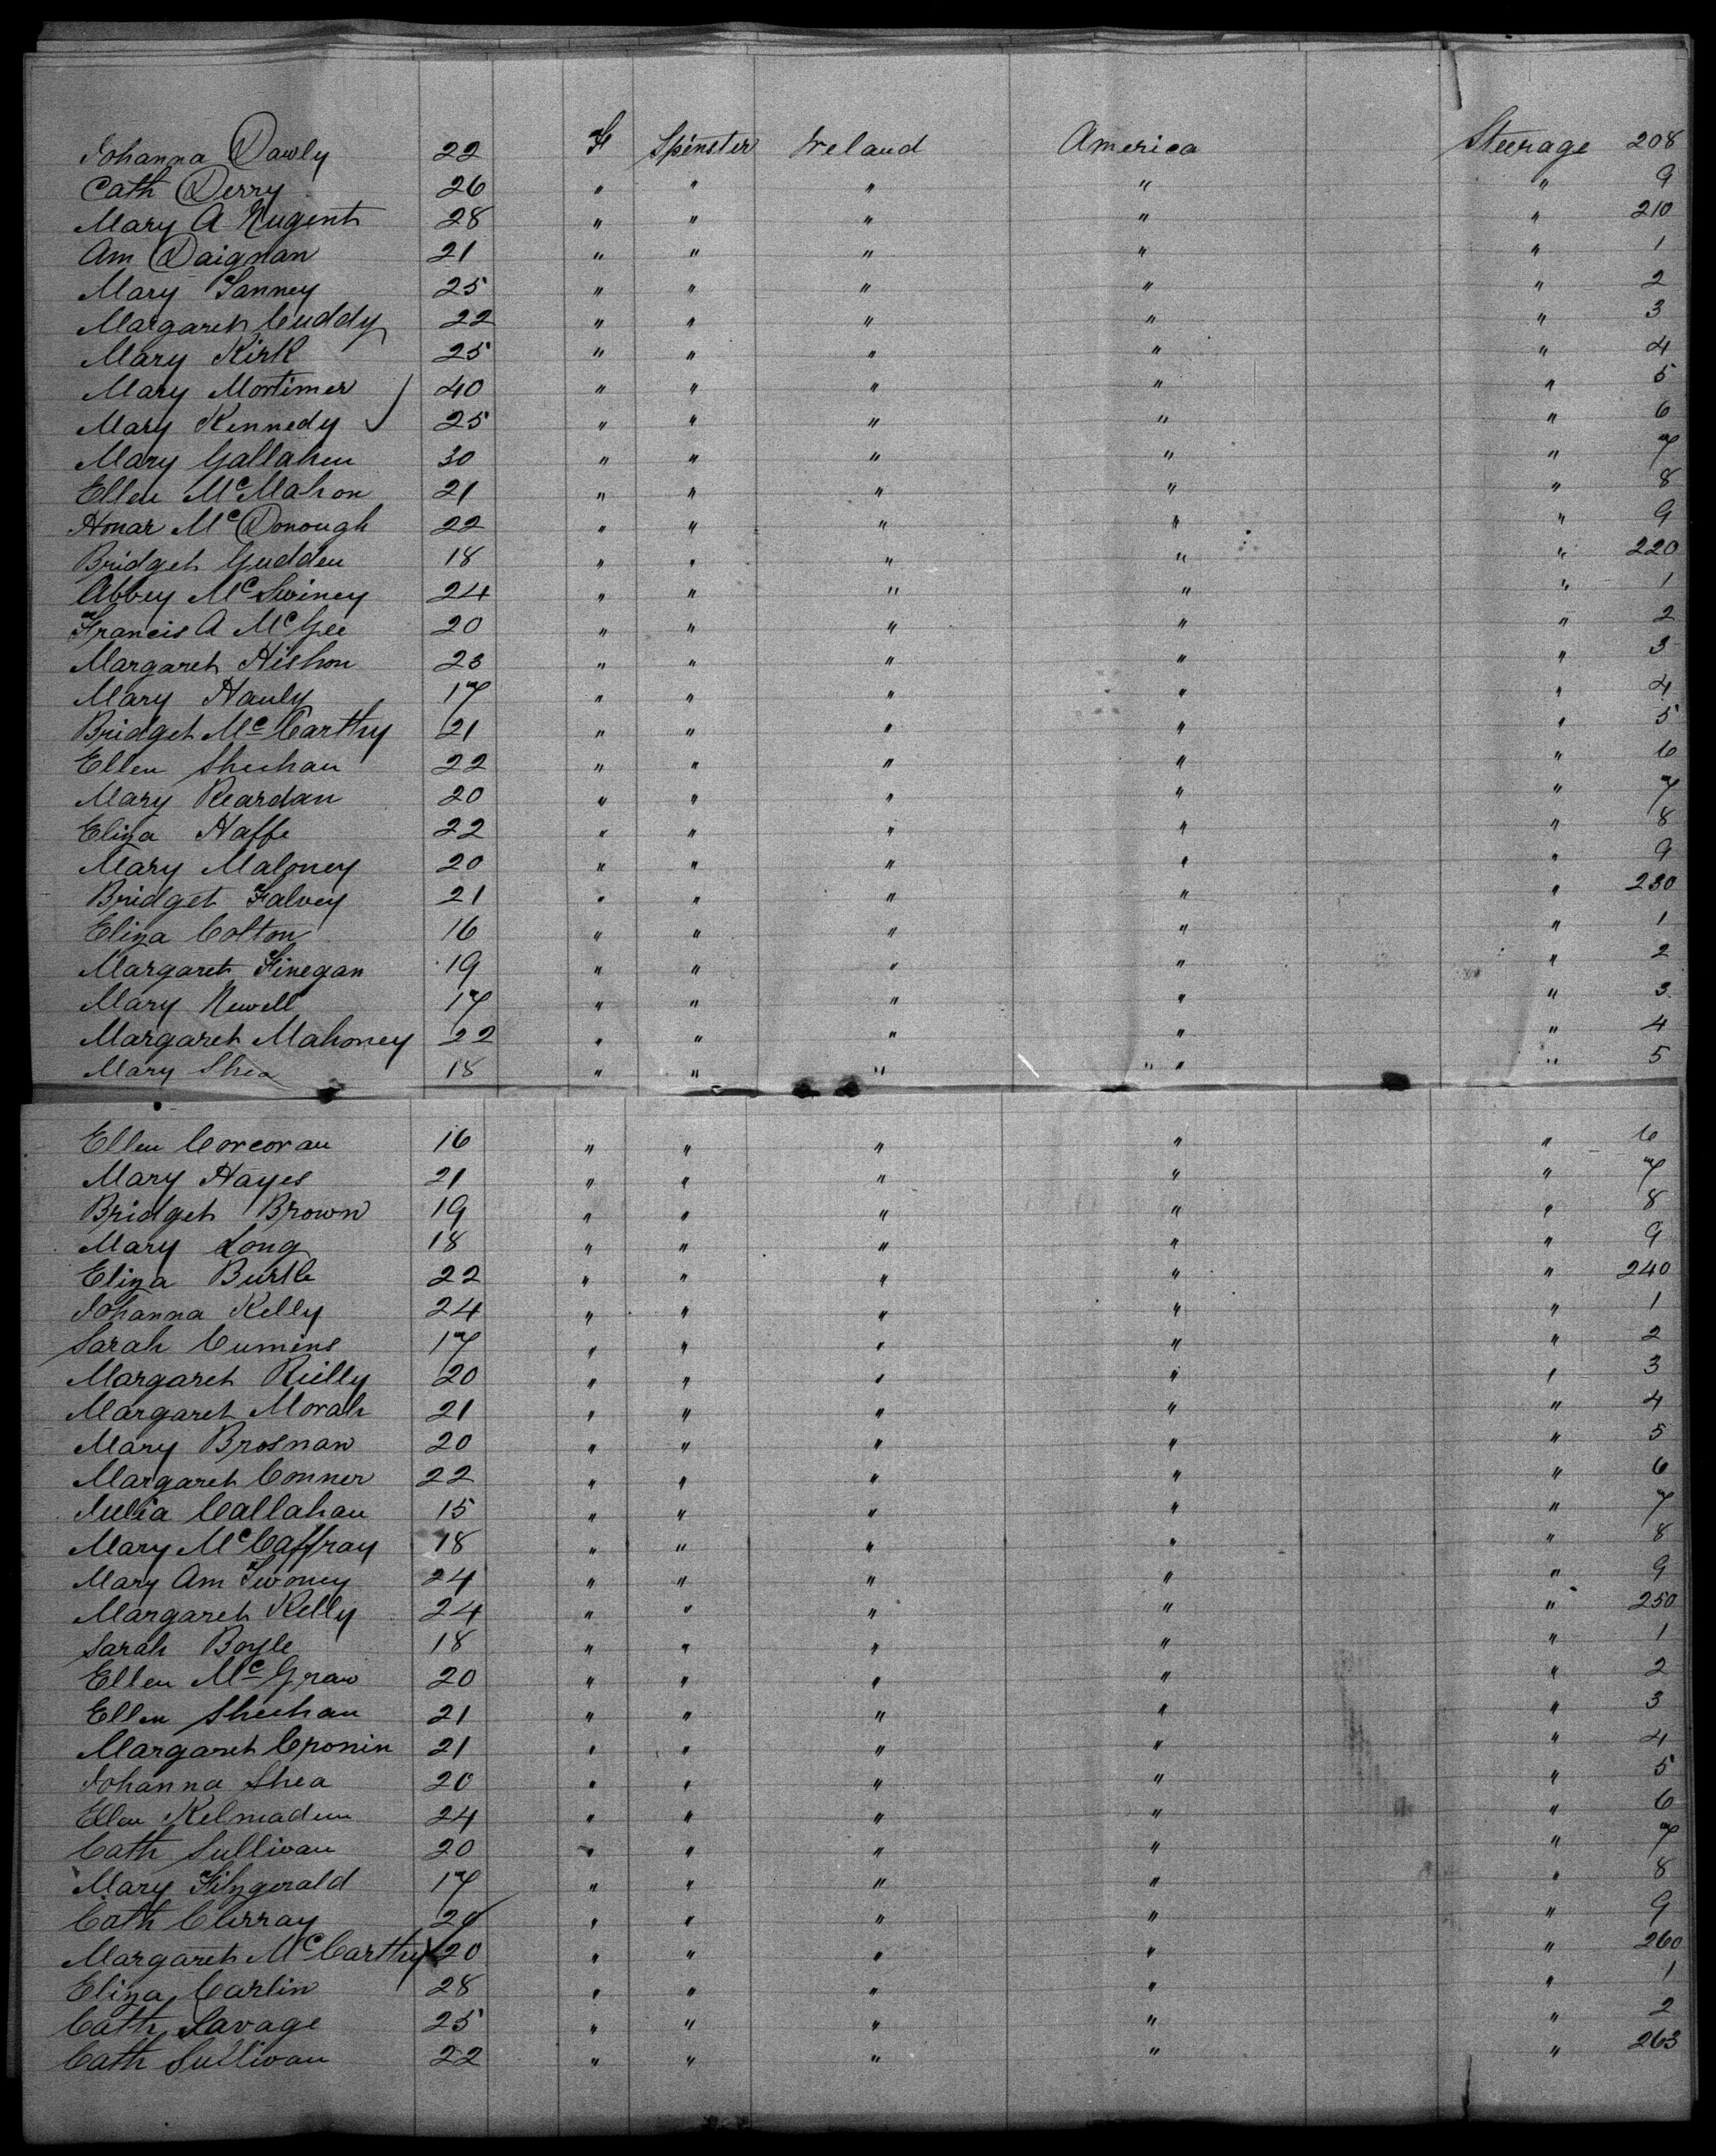 Johanna Dawly 22 F Spinster Ireland America Steerage 208
Cath Derry 26 " " " " " 9
Mary A Nugent 28 " " " " " 210
Ann Daignan 21 " " " " " 1
Mary Fanney 25 " " " " " 2
Margaret Cuddy 22 " " " " " 3
Mary Kirk 25 " " " " " 4
Mary Mortimer 40 " " " " " 5
Mary Kennedy 25 " " " " " 6
Mary Gallahen 30 " " " " " 7
Ellen McMahon 21 " " " " " 8
Honar McDonough 22 " " " " " 9
Bridget Gudden 18 " " " " " 220
Abbey McSwiney 24 " " " " " 1
Francis A McGee 20 " " " " " 2
Margaret Hishon 23 " " " " " 3
Mary Hauly 17 " " " " " 4
Bridget McCarthy 21 " " " " " 5
Ellen Sheehan 22 " " " " " 6
Mary Reardan 20 " " " " " 7
Eliza Haffe 22 " " " " " 8
Mary Maloney 20 " " " " " 9
Bridget Falvey 21 " " " " " 230
Eliza Colton 16 " " " " " 1
Margaret Finegan 19 " " " " " 2
Mary Newell 17 " " " " " 3
Margaret Mahoney 22 " " " " " 4
Mary Shea 18 " " " " " 5
Ellen Corcoran 16 " " " " " 6
Mary Hayes 21 " " " " " 7
Bridget Brown 19 " " " " " 8
Mary Long 18 " " " " " 9
Eliza Burke 22 " " " " " 240
Johanna Kelly 24 " " " " " 1
Sarah Cumins 17 " " " " " 2
Margaret Rielly 20 " " " " " 3
Margaret Morah 21 " " " " " 4
Mary Brosnan 20 " " " " " 5
Margaret Conner 22 " " " " " 6
Julia Callahan 15 " " " " " 7
Mary McCaffray 18 " " " " " 8
Mary Ann Twoney 24 " " " " " 9
Margaret Kelly 24 " " " " " 250
Sarah Boyle 18 " " " " " 1
Ellen McGraw 20 " " " " " 2
Ellen Sheehan 21 " " " " " 3
Margaret Cronin 21 " " " " " 4
Johanna Shea 20 " " " " " 5
Ellen 24 " " " " " 6
Cath Sullivan 20 " " " " " 7
Mary Fitzgerald 17 " " " " " 8
Cath Curray " " " " " 9
Margaret McCarthy 20 " " " " " 260
Eliza Carlin 28 " " " " " 1
Cath Savage 25 " " " " " 2
Cath Sullivan 22 " " " " " 263